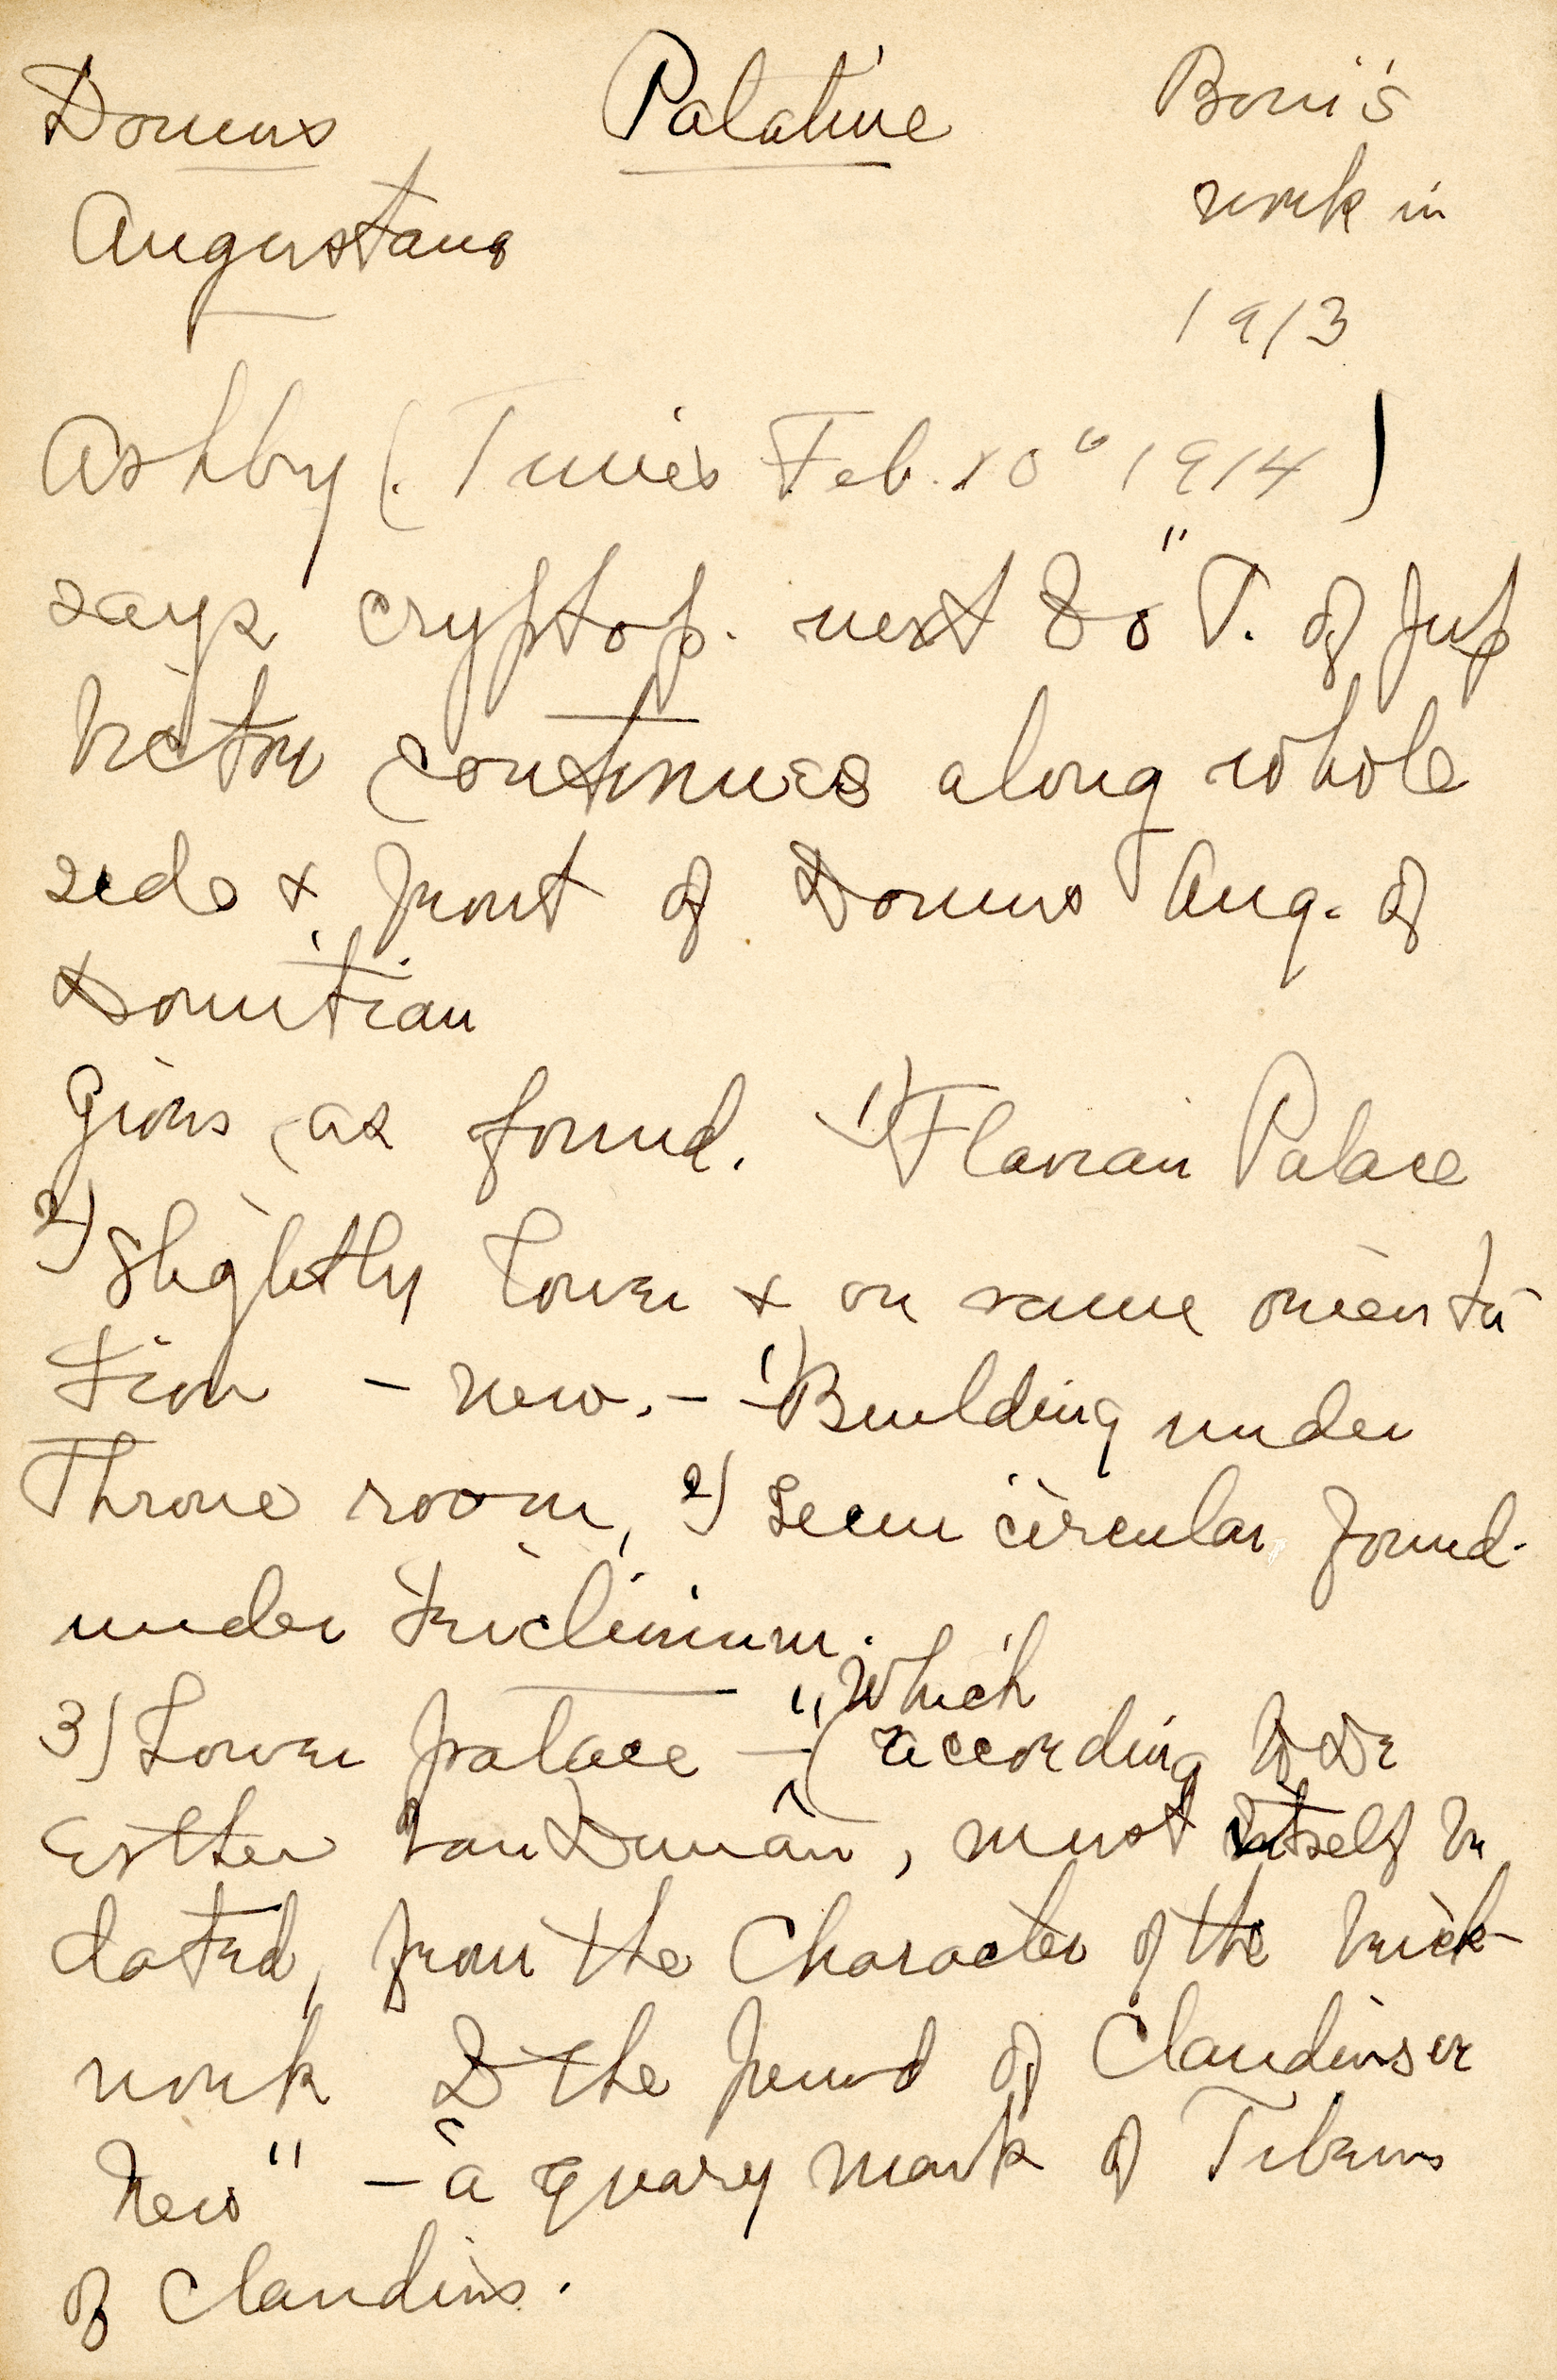 Domus Palatine Boni's
Augustana work in
1913
Ashby (Times Feb. 10 1914)
says cryptop. next to "T. of Jup
Victor continues along whole
side & front of Domus Aug. of
Domitian
Gives as found. 1) Flavian Palace
2) Slightly lower & on same orienta
tion - new. - 1) Building under
Throne room, 2) Semi circular found.
under triclinium.
3) Lower palace - "(which
according to Dr
Esther Van Deman, must itself be
dated, from the character of the brick-
work to the period of Claudius or
Nero" - a quary mark of Tiberius
of Claudius.